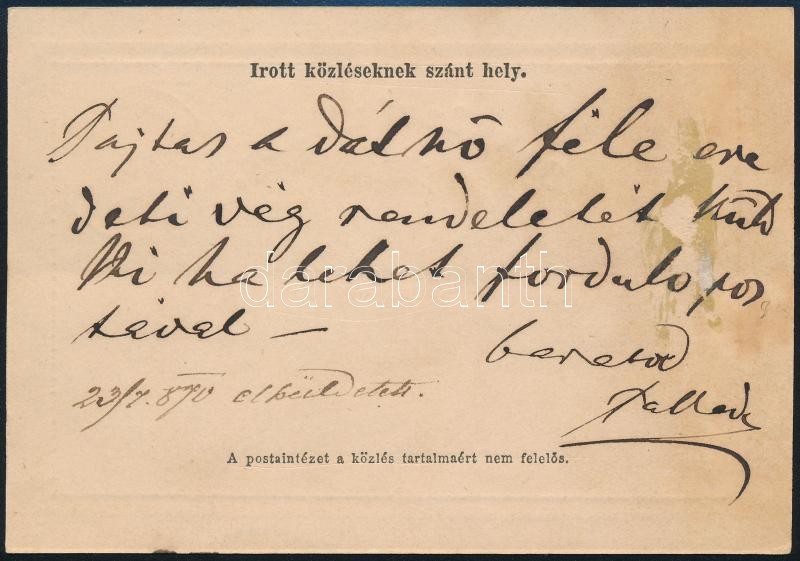 Irott közléseknek szánt hely.
Pajtas a Dálnō féle ere
deti vég rendeletét küld
ki ha lehet fordulo pos
taval —
baratod
23/7. 870 elküldetett.
A postaintézet a közlés tartalmaért nem felelős.
darabanth